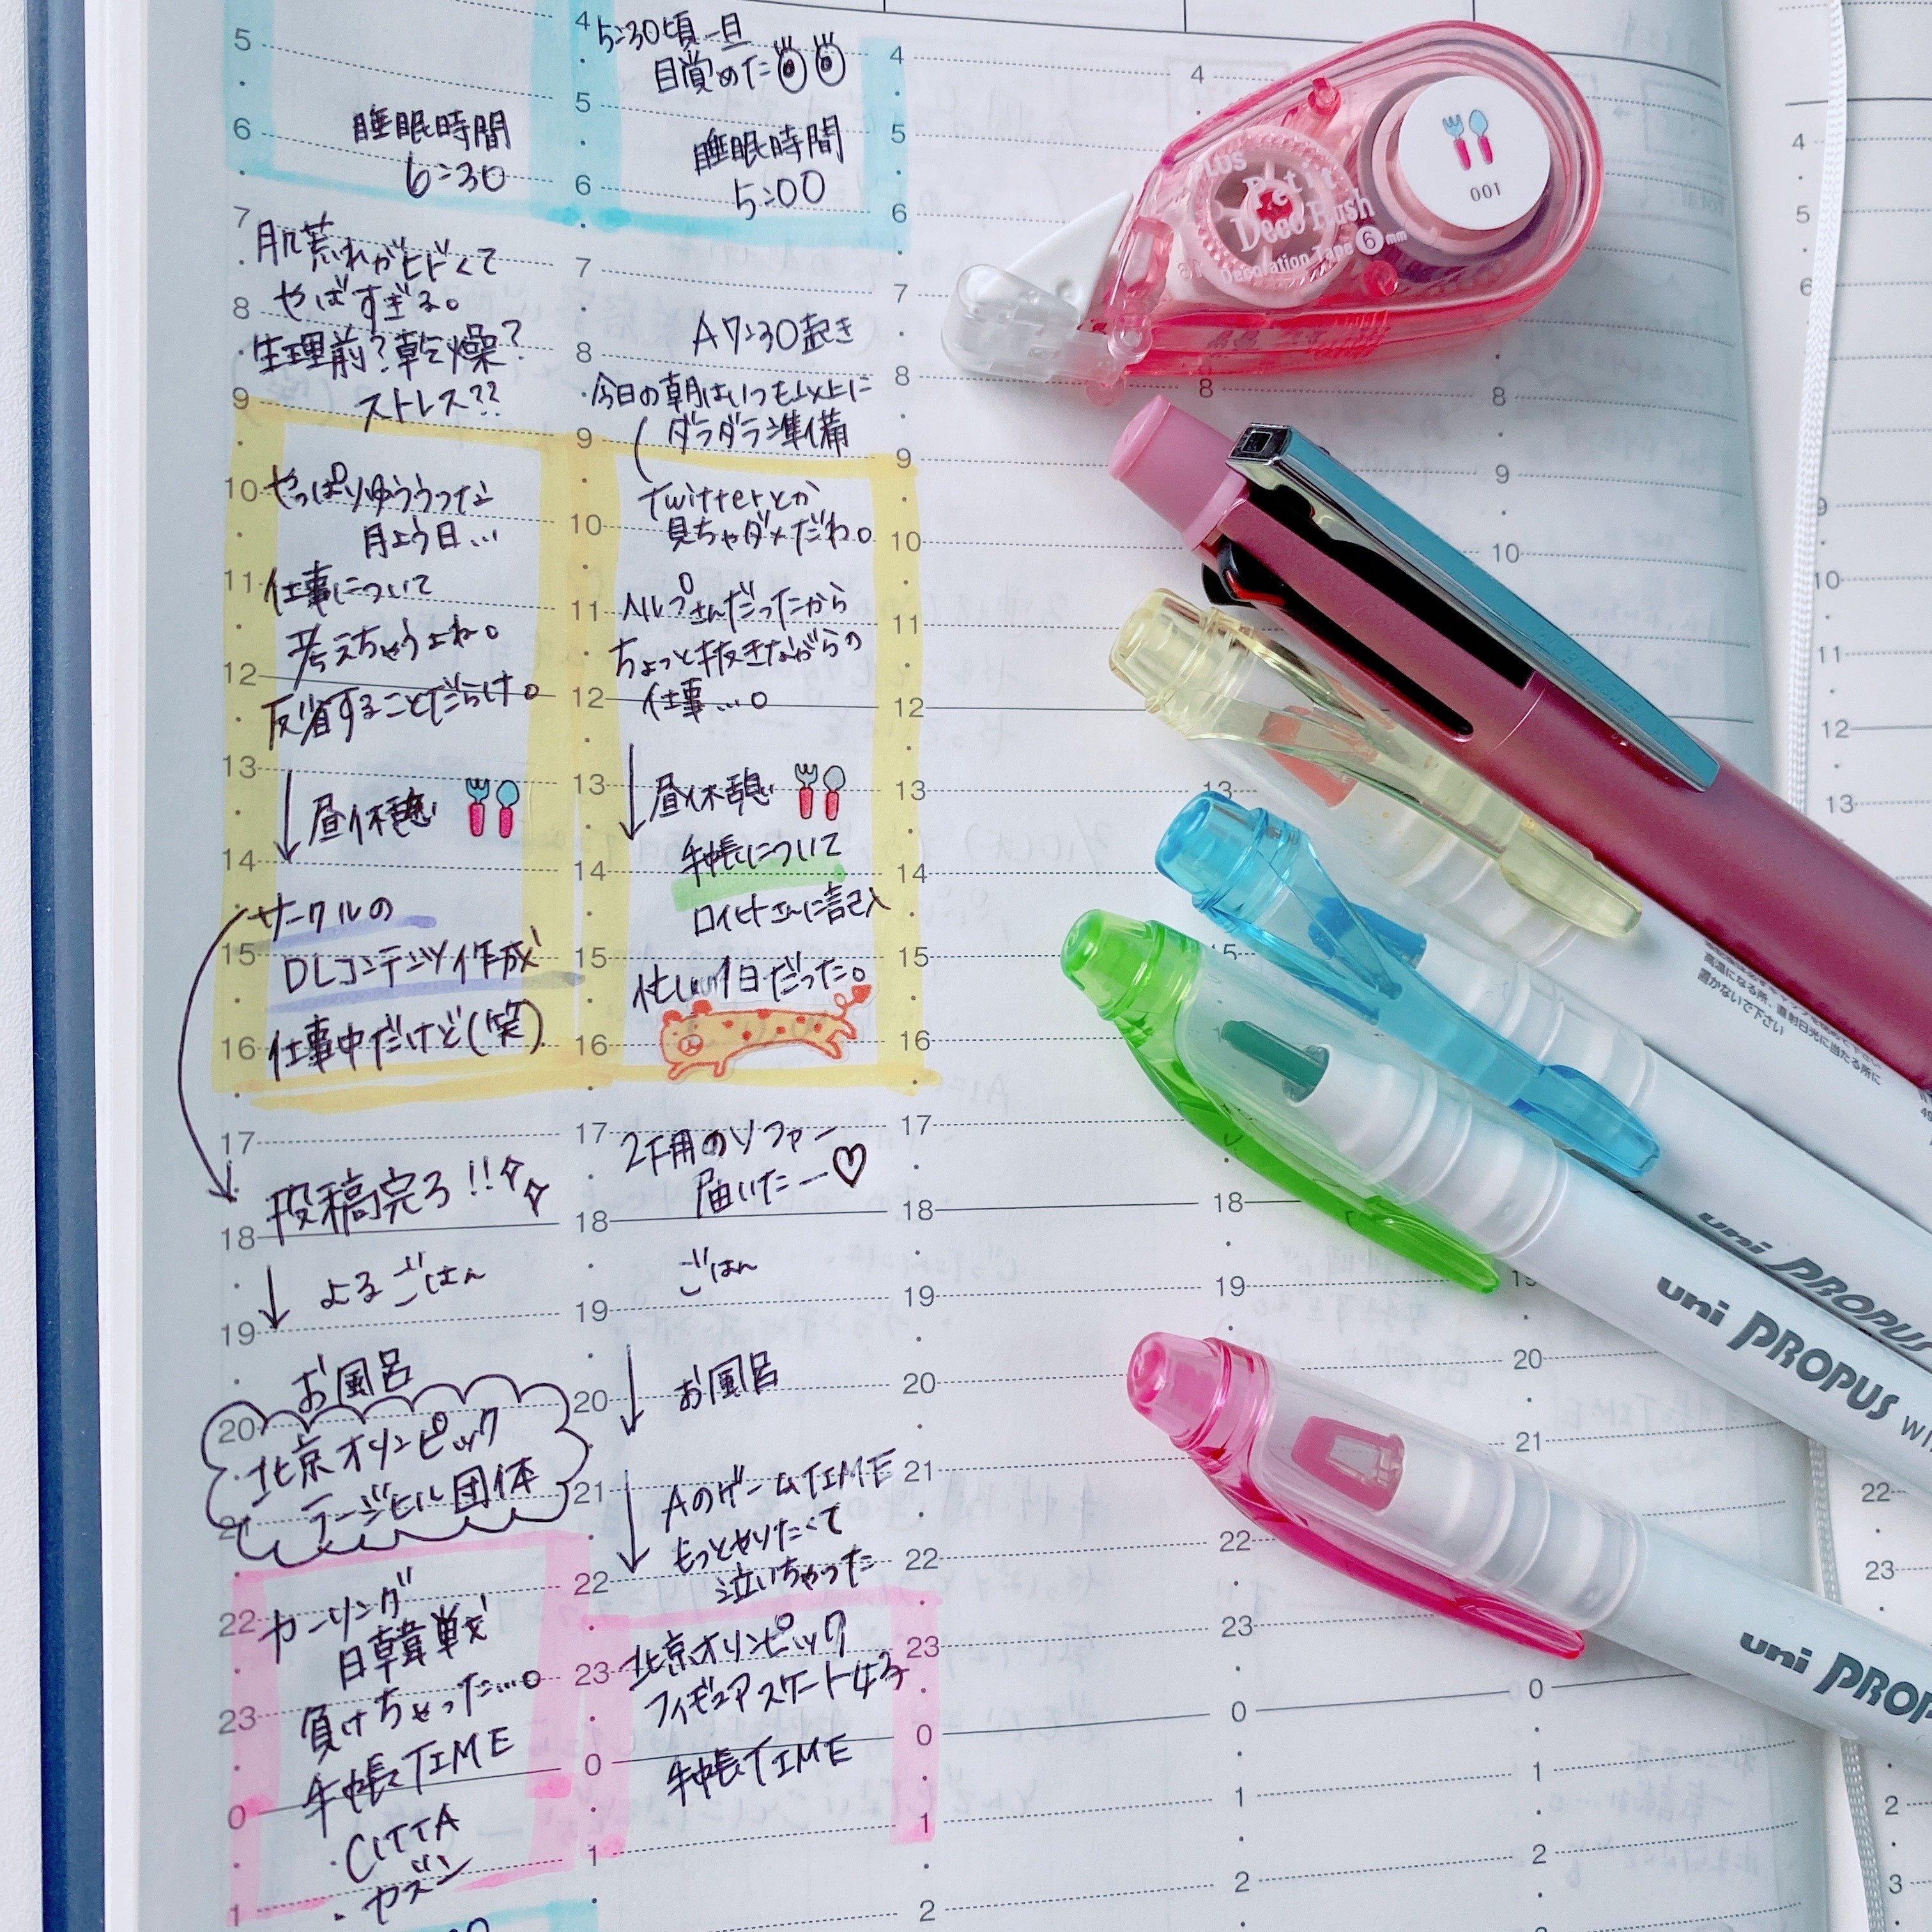 睡眠時間
6:30
肌荒れがヒドくて
やばすぎる。
生理前?乾燥?
ストレス??
やっぱりゆううつな
月よう日...
仕事について
考えちゃうよね。
反省することだらけ。
昼休憩
サークルの
DLコンテンツ作成
仕事中だけど(笑)
投稿完了!!
よるごはん
お風呂
北京オリンピック
ラージヒル団体
カーリング
日韓戦
負けちゃった...。
手帳TIME
・CITTA
・カズン
5:30頃一旦
目覚めた
睡眠時間
5:00
A7:30起き
今日の朝はいつも以上に
ダラダラ準備
Twitterとか
見ちゃダメだわ。
ヘルプさんだったから
ちょっと抜きながらの
仕事...。
昼休憩
手帳について
ロイヒトさんに記入
忙しい1日だった。
2F用のソファー
届いたー♡
ごはん
お風呂
AのゲームTIME
もっとやりたくて
泣いちゃった
北京オリンピック
フィギュアスケート女子
手帳TIME
5
6
7
8
9
10
11
12
13
14
15
16
17
18
19
20
22
23
0
1
4
5
6
7
8
9
10
11
12
13
14
15
16
17
18
19
20
21
22
23
0
1
4
5
6
7
8
9
10
11
12
13
14
15
16
17
18
19
20
21
22
23
0
1
2
4
8
13
15
18
19
22
23
0
1
2
8
9
10
19
20
21
0
1
2
4
5
6
9
10
11
12
13
22
23
2
3
PLUS
Petit
Deco Rush
Decoration Tape 6mm
001
高温になる所、直射日光に当たる所に
置かないで下さい
uni PROPUS
uni PROPUS WI
uni PROP